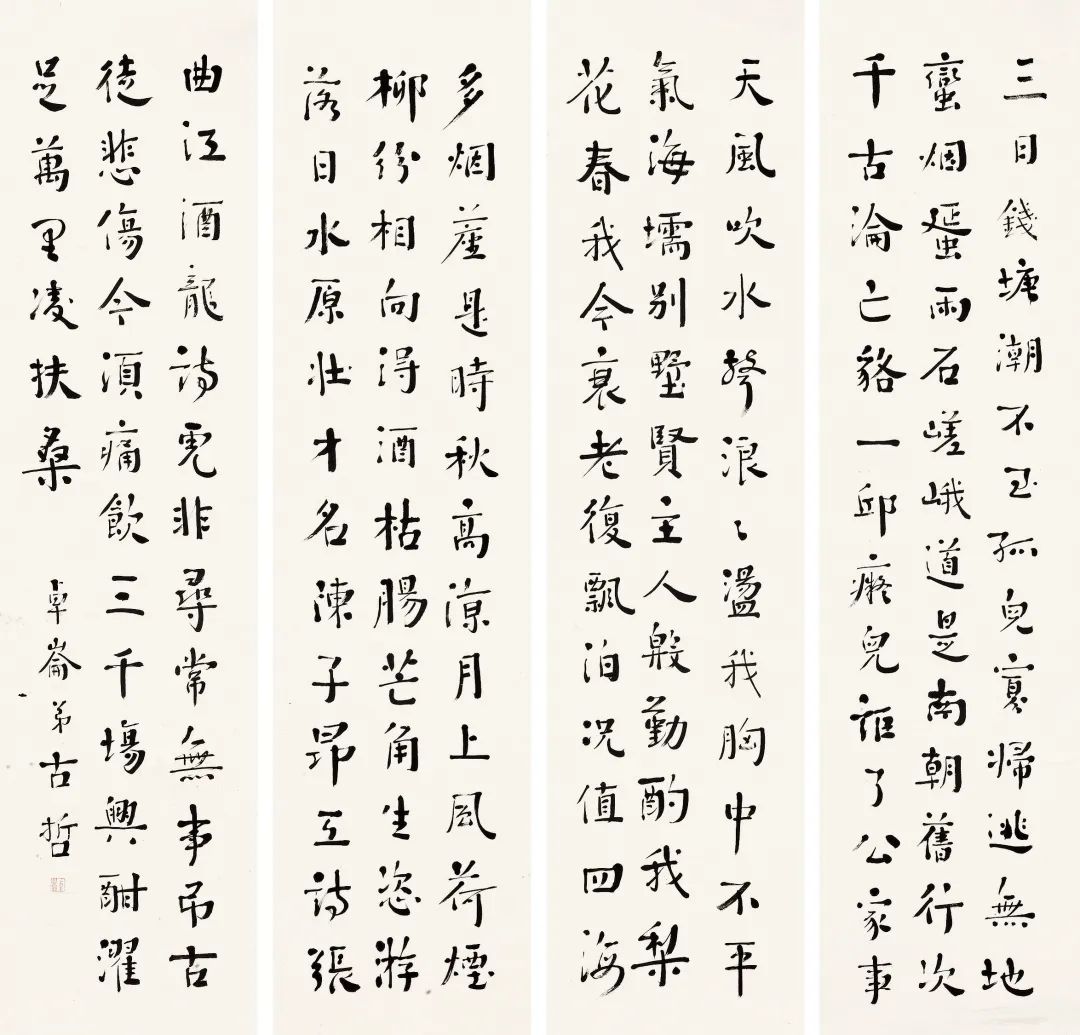 三日錢塘潮不至孤兒寡婦逃無地
蠻烟蜑雨石嵯峨道是南朝舊行次
千古淪亡貉一邱癡兒詎了公家事
天風吹水聲浪〻盪我胸中不平
氣海壖別墅賢主人殷勤酌我梨
花春我今衰老復飄泊况值四海
多烟塵是時秋高涼月上風荷煙
柳紛相向得酒枯腸芒角生恣游
落日水原壯才名陳子昂工詩張
曲江酒龍詩虎非尋常無事弔古
徒悲傷今須痛飲三千場興酣濯
足萬里凌扶桑
卓崙弟 古哲